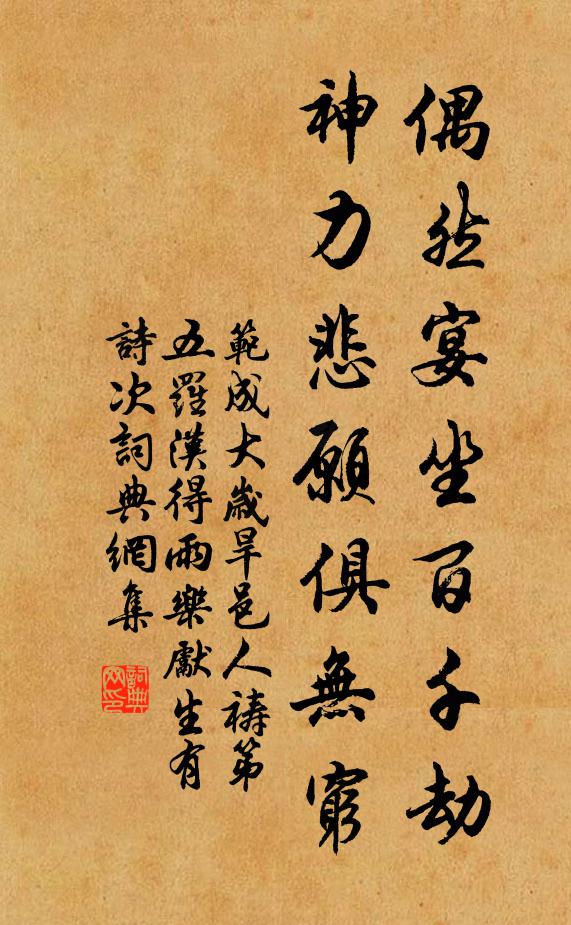 偶然宴坐百千劫
神力悲願俱無窮
範成大歲旱邑人禱第
五羅漢得雨樂獻生有
詩次詞典網集
詞典
网印